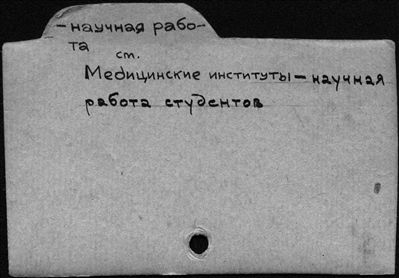 – научная рабо-
та
см.
Медицинские институты – научная
работа студентов